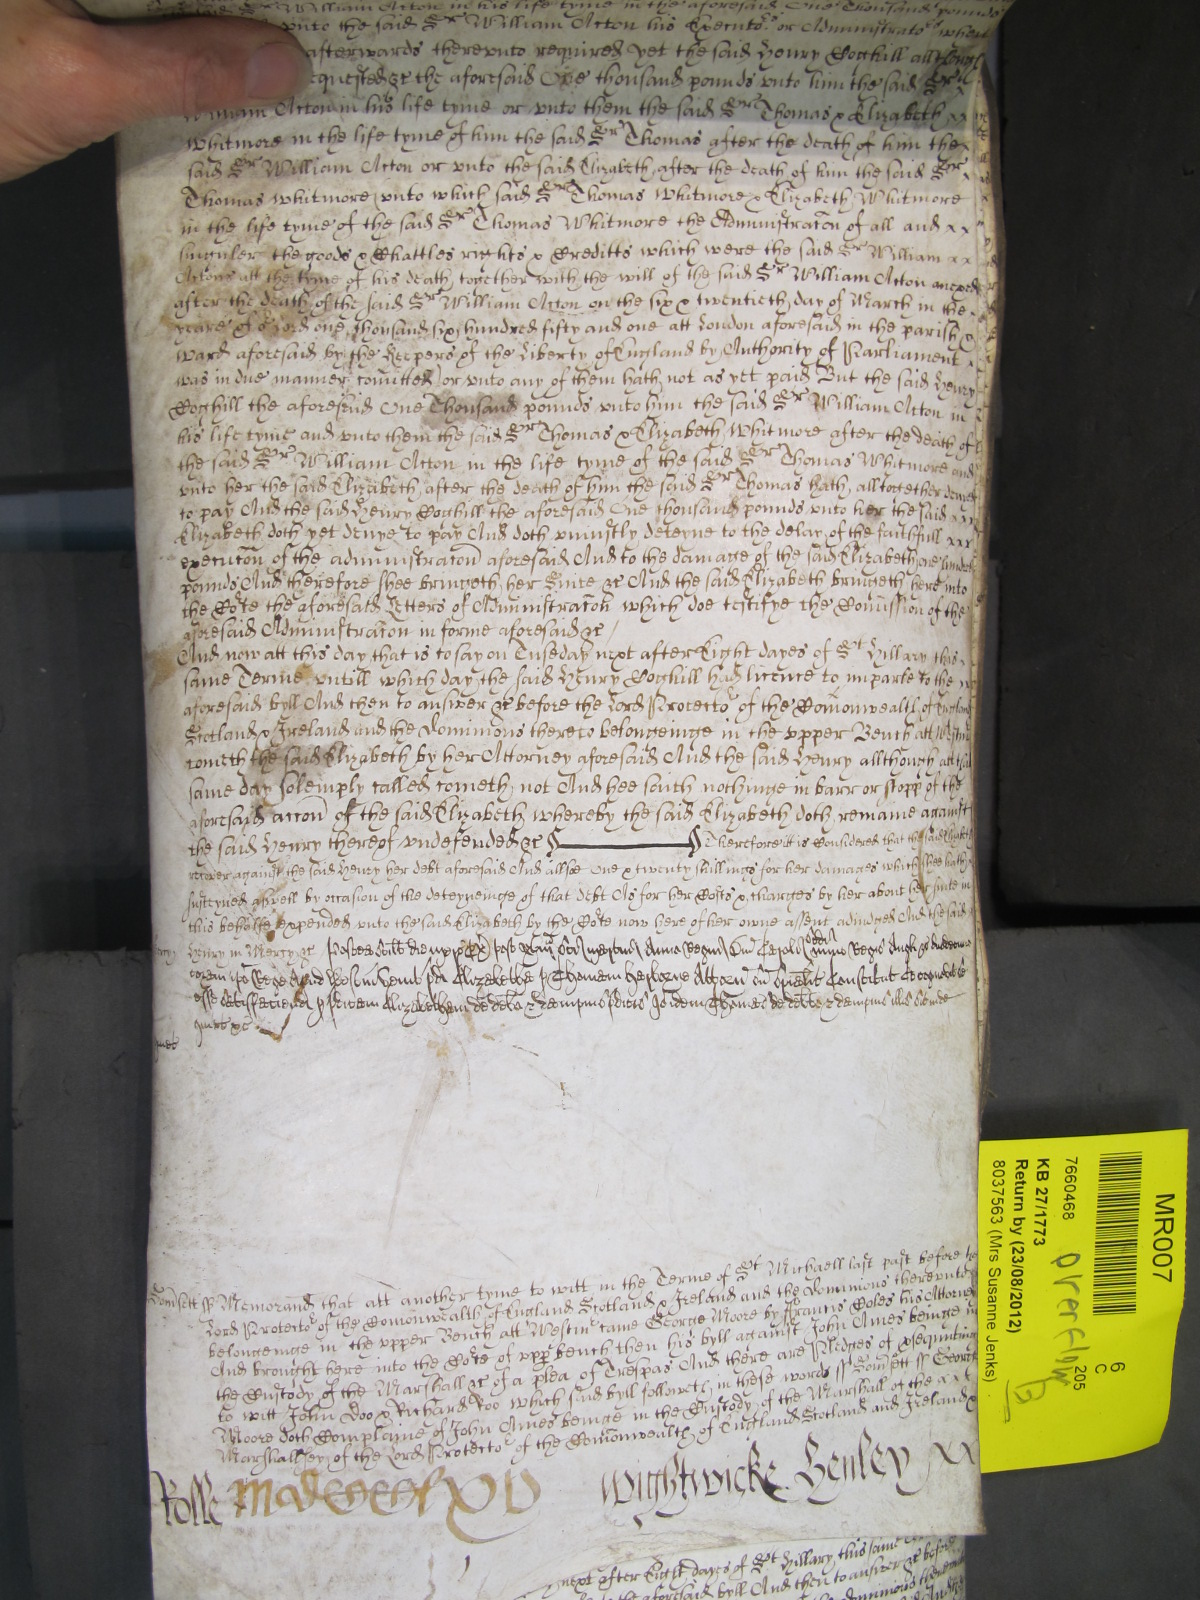 said Sr William Acton in his life tyme in the aforesaid One Thousand pounds
unto the said Sr William Acton his Executors or Administrators when
afterwards thereunto required yet the said Henry Coghill allthough
requested &c the aforesaid One thousand pounds unto him the said Sr
William Acton in his life tyme or unto them the said Sr Thomas & Elizabeth
Whitmore in the life tyme of him the said Sr Thomas after the death of him the
said Sr William Acton or unto the said Elizabeth after the death of him the said Sr
Thomas Whitmore unto which said Sr Thomas Whitmore & Elizabeth Whitmore
in the life tyme of the said Sr Thomas Whitmore the Administracon of all and
singuler the goods & Chattles rights & Creditts which were the said Sr William
Actons att the tyme of his death together with the will of the said Sr William Acton anexed
after the death of the said Sr William Acton on the six & twentieth day of March in the
yeare of or Lord one thousand six hundred fifty and one att London aforesaid in the parish &
ward aforesaid by the Keepers of the Liberty of England by Authority of Parliament
was in due manner comitted or unto any of them hath not as yet paid But the said Henry
Coghill the aforesaid One Thousand pounds unto him the said Sr William Acton in
his life tyme and unto them the said Sr Thomas & Elizabeth Whitmore after the death of
the said Sr William Acton in the life tyme of the said Sr Thomas Whitmore and
unto her the said Elizabeth after the death of him the said Sr Thomas hath alltogether denied
to pay And the said Henry Coghill the aforesaid One thousand pounds unto her the said
Elizabeth doth yet denye to pay And doth uniustly deteyne to the delay of the faithfull
execution of the administracon aforesaid And to the damage of the said Elizabeth one hundred
pounds And therefore shee bringeth her Suite &c And the said Elizabeth bringeth here into
the Corte the aforesaid Letters of Administracon which doe testifye the Comission of the
aforesaid Administracon in forme aforesaid &c
And now att this day that is to say on Tuseday next after Eight dayes of St Hillary this
same Terme untill which day the said Henry Coghill had licence to imparle to the
aforesaid byll And then to answer &c before the Lord Protector of the Comonwealth of England
Scotland & Ireland and the Dominions thereto belongeinge in the upper Bench att Westm
cometh the said Elizabeth by her Attorney aforesaid And the said Henry allthough att the
same day solemply called cometh not And hee saith nothinge in barr or stopp of the
aforesaid accon of the said Elizabeth whereby the said Elizabeth doth remaine against
the said Henry thereof undefended &c Therefore itt is Considered that the said Elizabeth
recover against the said Henry her debt aforesaid And allsoe One & twenty shillings for her damages which shee hath
susteyned aswell by occasion of the deteyneinge of that debt As for her Costs & charges by her about her suite in
this behalfe expended unto the said Elizabeth by the Corte now here of her owne assent adiudged And the said
Henry in Mercy &c
Dorsett ss Memorand that att another tyme to witt in the Terme of St Michaell last past before the
Lord Protector of the Comonwealth of England Scotland & Ireland and the Dominions thereunto
belongeinge in the upper Bench att Westm came George Moore by ffrancis Coles his Attorney
And brought here into the Corte of upper bench then his byll against John Ames beinge in
the Custody of the Marshall &c of a plea of Trespas And there are Pledges of prosequuting
to witt John Doo & Richard Roo which said byll followeth in these words ss Dorsett ss George
Moore doth Complaine of John Ames beinge in the Custody of the Marshall of the
Marshallsey of the Lord Protector of the Comonwealth of England Scotland and Ireland
Rolle
Wightwicke Henley
next after Eight dayes of St Hillary this same
the aforesaid byll And then to answer &c before
MR007
6
C
205
7660468
overflow
KB 27/1773
Return by (23/08/2012)
8037563 (Mrs Susanne Jenks)